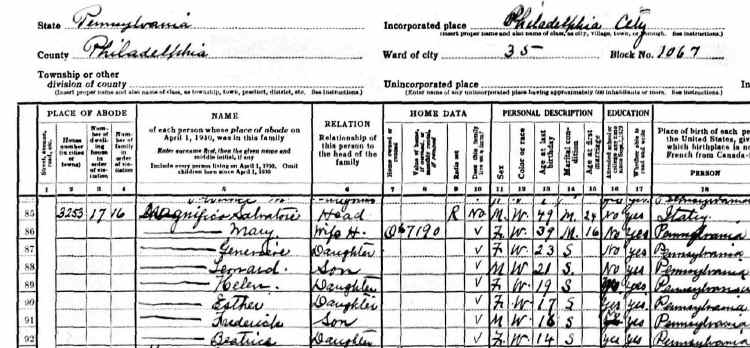 State Pennsylvania Incorporated place Philadelphia City
(Insert proper name and also name of class, as city, village, town, or borough. See instructions.)
County Philadelphia Ward of city 35 Block No. 1067
Township or other
division of county Unincorporated place
(Insert proper name and also name of class, as township, town, precinct, district, etc. See instructions.) (Enter name of any unincorporated place having approximately 500 inhabitants or more. See instructions.)
PLACE OF ABODE NAME RELATION HOME DATA PERSONAL DESCRIPTION EDUCATION Place of birth of each per
of each person whose place of abode on April 1, 1930, was in this family
Enter surname first, then the given name and middle initial, if any
Include every person living on April 1, 1930. Omit children born since April 1, 1930
Relationship of this person to the head of the family
Street, avenue, road, etc. House number (in cities or towns) Number of dwelling house in order of visitation Number of family in order of visitation
Home owned or rented Radio set Does this family live on a farm? Sex Color or race Age at last birthday Marital condition Age at first marriage
the United States, giv which birthplace is n French from Canada-
PERSON
1 2 3 4 5 6 7 8 9 10 11 12 13 14 15 16 17 18
85 3253 17 16 Magnifico Salvatore Head R No M W 49 M 24 No yes Italy
86 Mary Wife H. O 67190 √ F W 39 M 16 No yes Pennsylvania
87 Genevieve Daughter √ F W 23 S No yes Pennsylvania
88 Leonard Son √ M W 21 S No yes Pennsylvania
89 Helen Daughter √ F W 19 S yes Pennsylvania
90 Esther Daughter √ F W 17 S yes yes Pennsylvania
91 Frederick Son √ M W 16 S yes Pennsylvania
92 Beatrice Daughter √ F W 14 S yes yes Pennsylvania